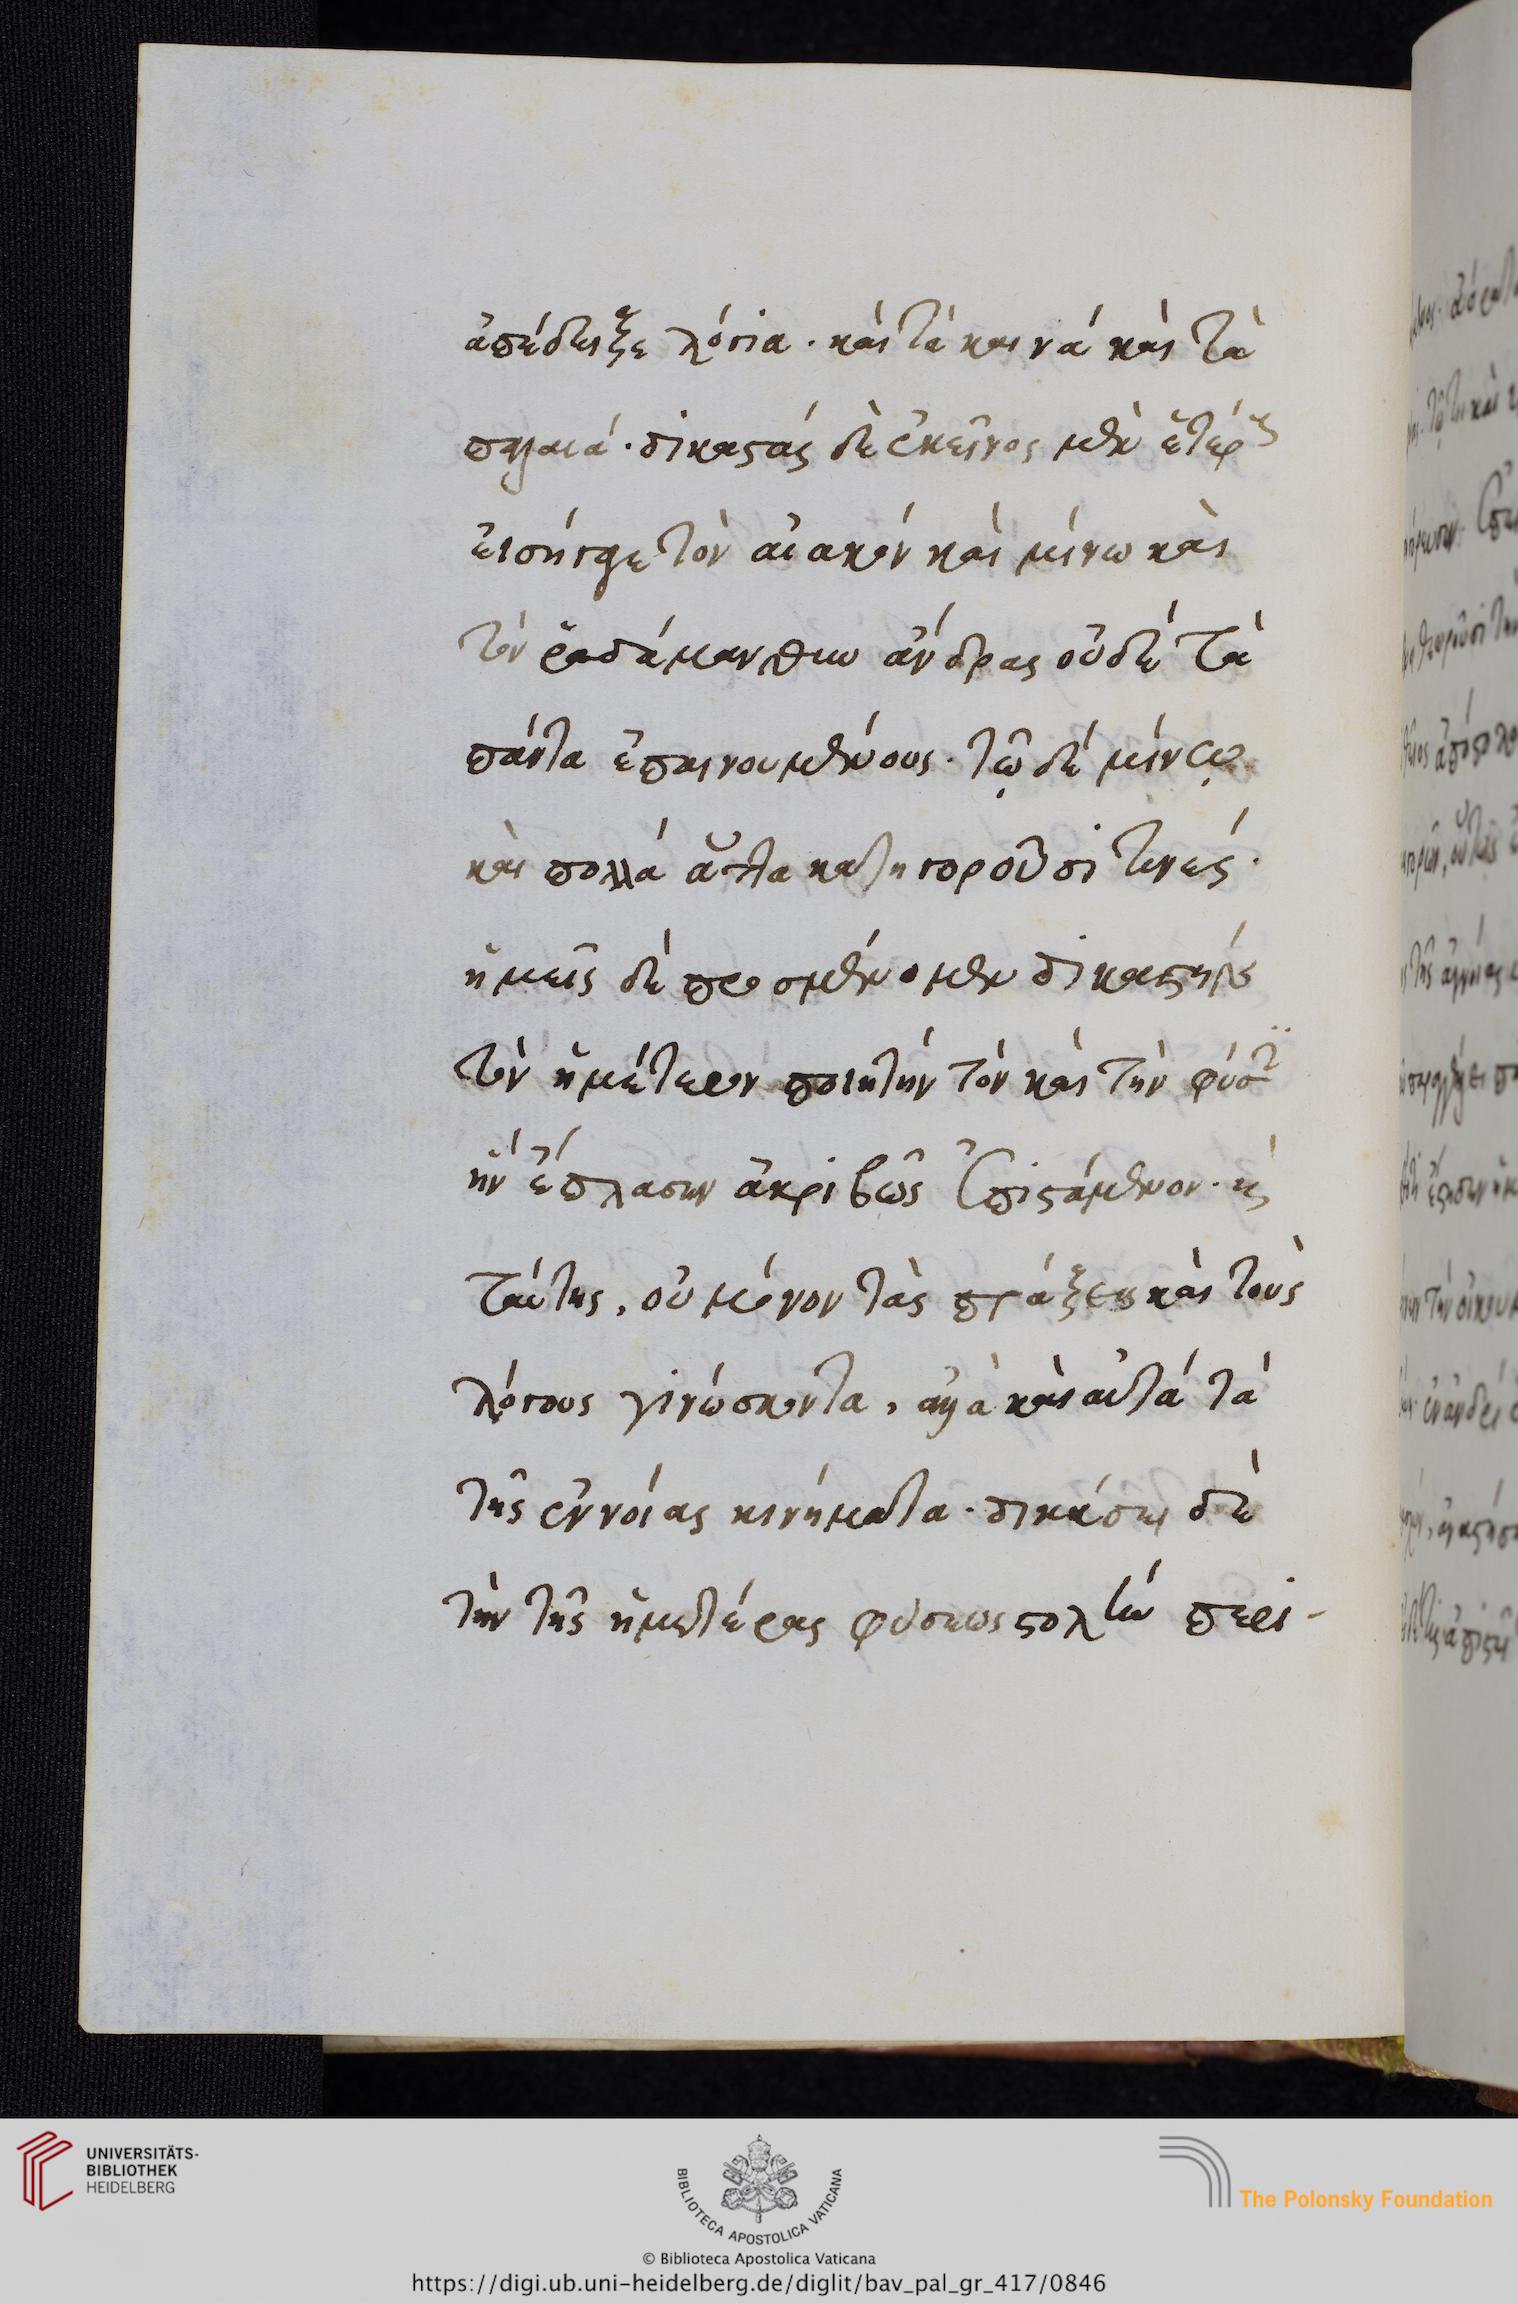 ἀπέδειξε λόγια. καὶ τὰ καινά καὶ τὰ
παλαιά. δικαστάς δὲ ἐκεῖνος μὲν ἑτέρους
εἰσήγαγε τὸν αἰακόν καὶ μίνω καὶ
τόν ῥαδάμανθυν ἄνδρας οὐδέ τὰ
πάντα ἐπαινουμένους. τῷ δέ μίνῳ
καὶ πολλά ἄττα κατηγοροῦσί τινές.
ἡμεῖς δέ προσμένομεν δικαστήν
τὸν ἡμέτερον ποιητήν τὸν καὶ τὴν φύσιν
ἥν ἔπλασεν ἀκριβῶς ἐπιστάμενον. καὶ
ταύτης, οὐ μόνον τὰς πράξεις καὶ τοὺς
λόγους γινώσκοντα, ἀλλὰ καὶ αὐτά τὰ
τῆς ἐννοίας κινήματα. δικάσει δὲ
τὴν τῆς ἡμετέρας φύσεως στολὴν περι-
UNIVERSITÄTS-
BIBLIOTHEK
HEIDELBERG
BIBLIOTECA APOSTOLICA VATICANA
The Polonsky Foundation
© Biblioteca Apostolica Vaticana
https://digi.ub.uni-heidelberg.de/diglit/bav_pal_gr_417/0846